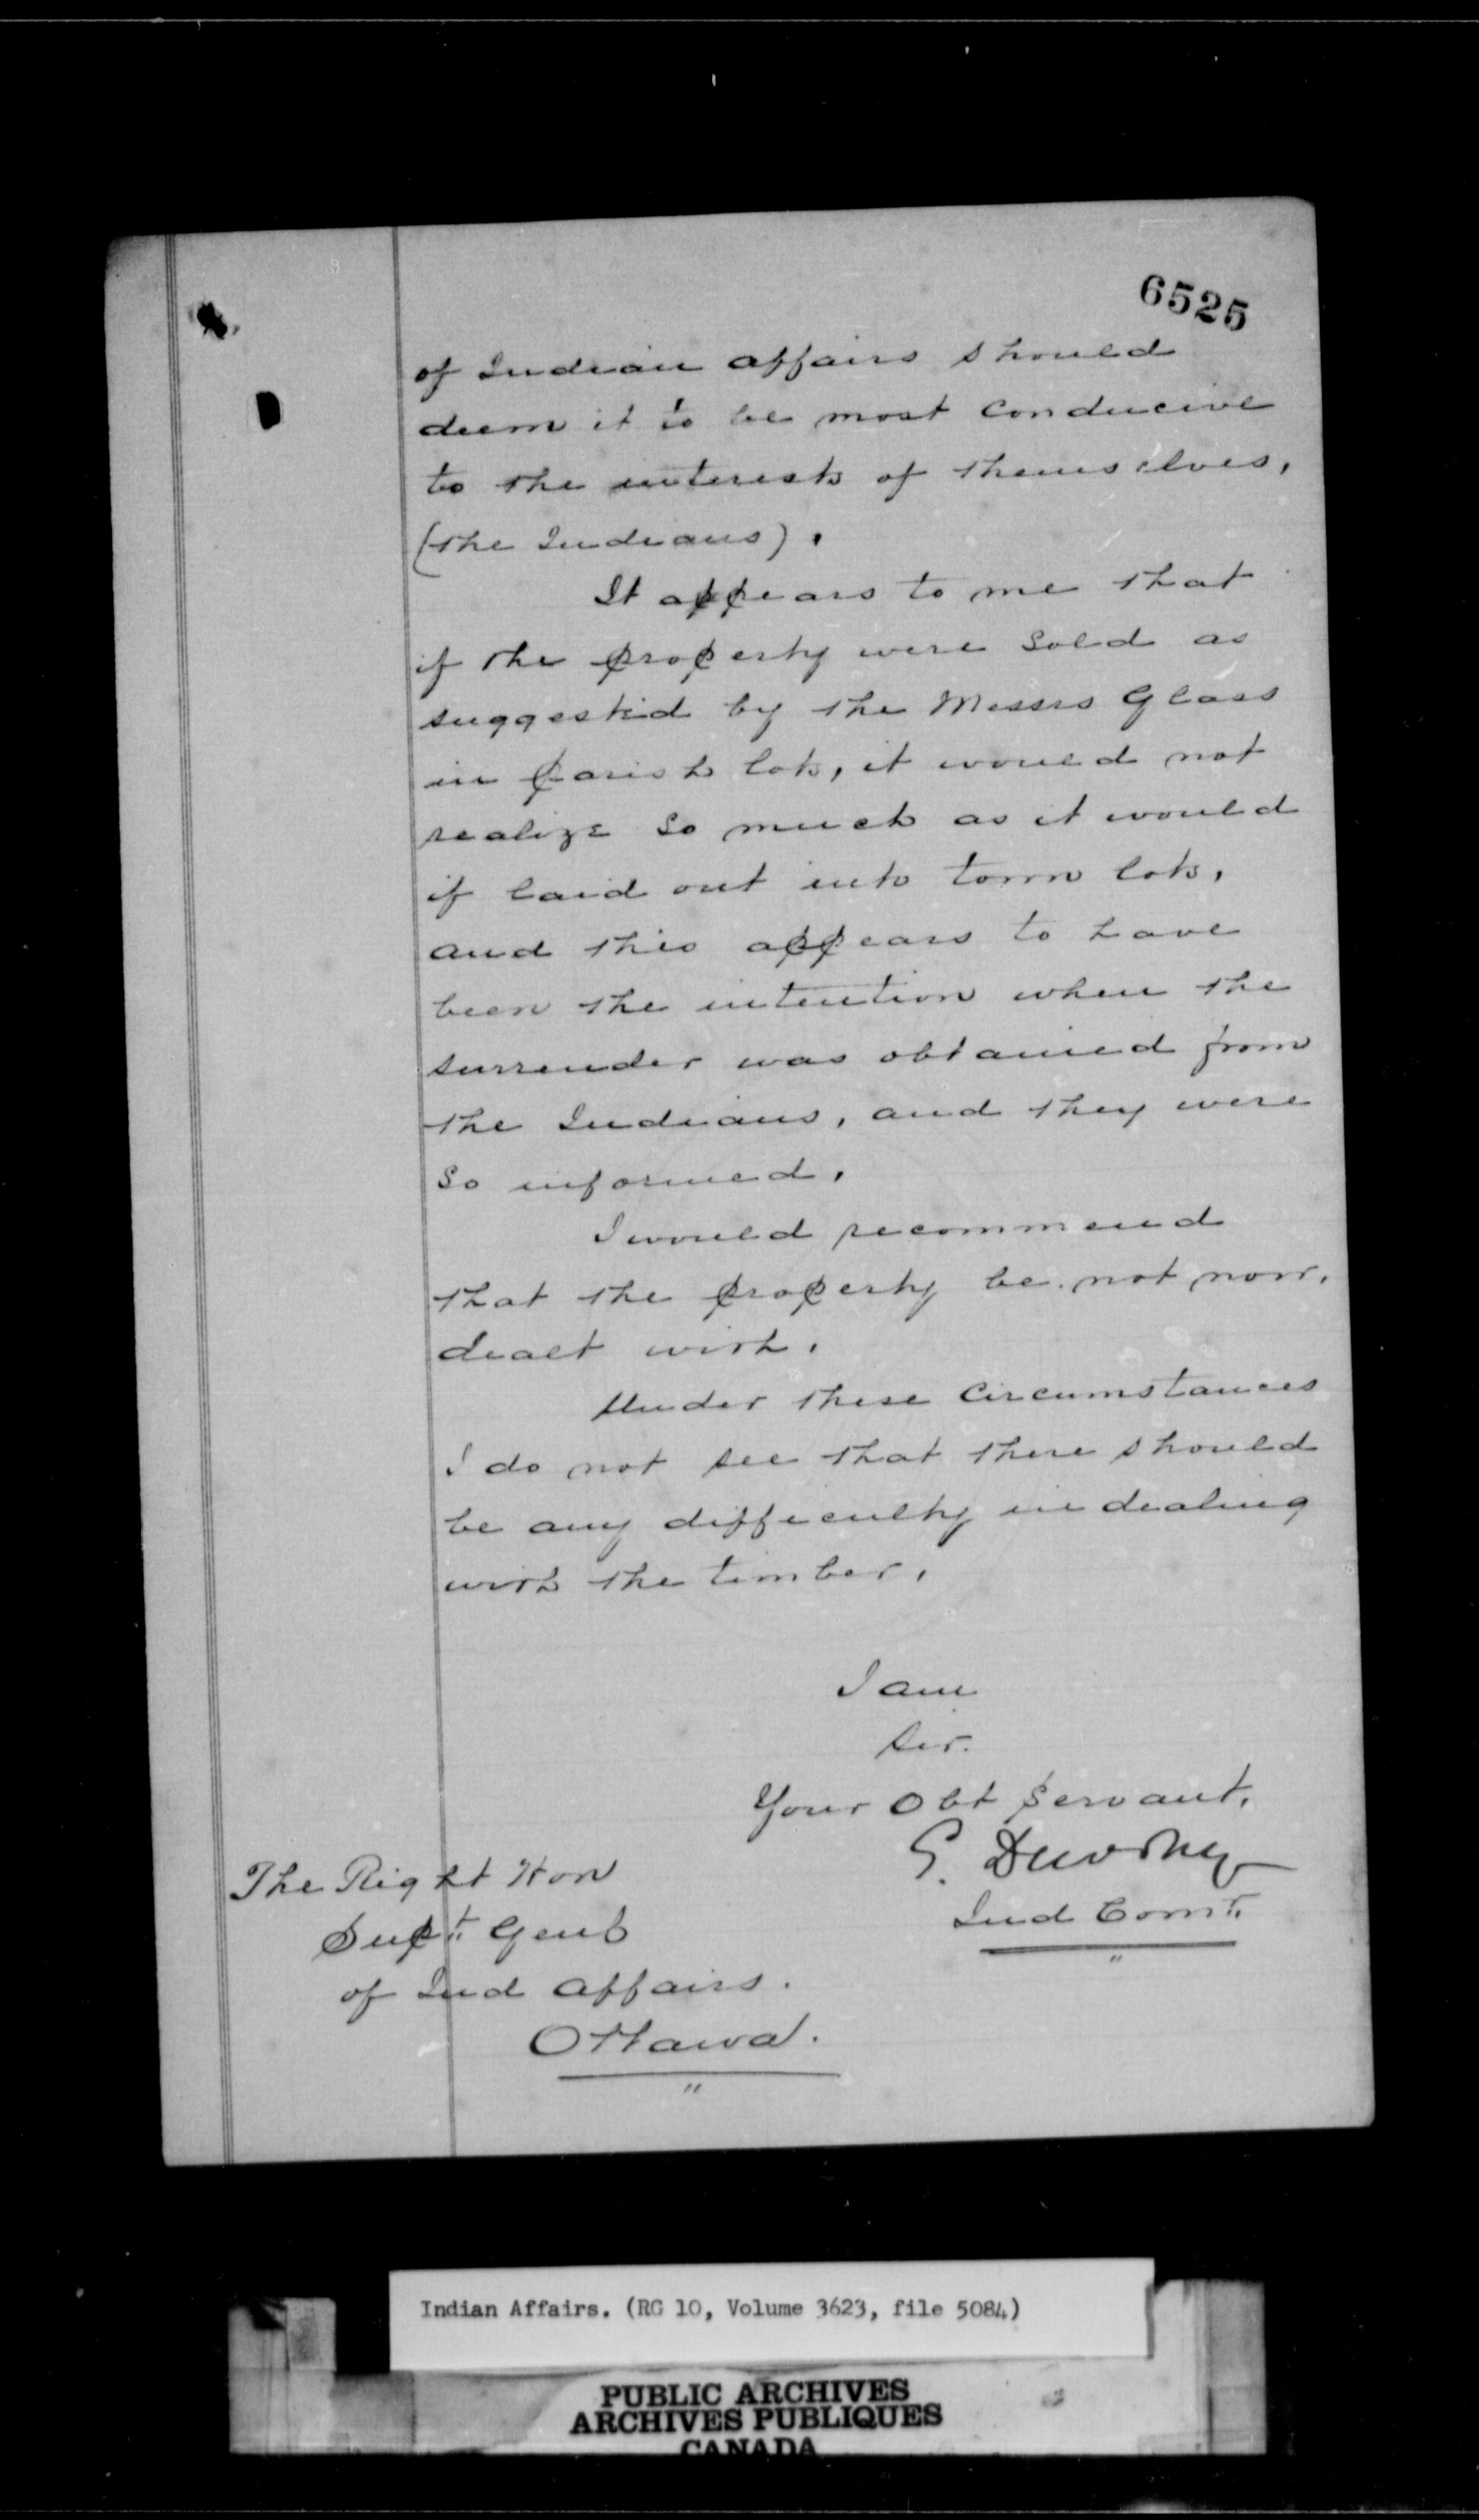 6525
of Indian Affairs should
deem it to be most conducive
to the interests of themselves,
(the Indians).
It appears to me that
if the property were sold as
suggested by the Messrs Glass
in parish lots, it would not
realize so much as it would
if laid out into town lots,
and this appears to have
been the intention when the
surrender was obtained from
the Indians, and they were
so informed.
I would recommend
that the property be not now.
dealt with.
Under these circumstances
I do not see that there should
be any difficulty in dealing
with the timber.
I am
Sir.
Your Obt Servant.
E. Dewdney
Ind Comr.
The Right Hon
Supt. Genl
of Ind Affairs.
Ottawa.
Indian Affairs. (RG 10, Volume 3623, file 5084)
PUBLIC ARCHIVES
ARCHIVES PUBLIQUES
CANADA